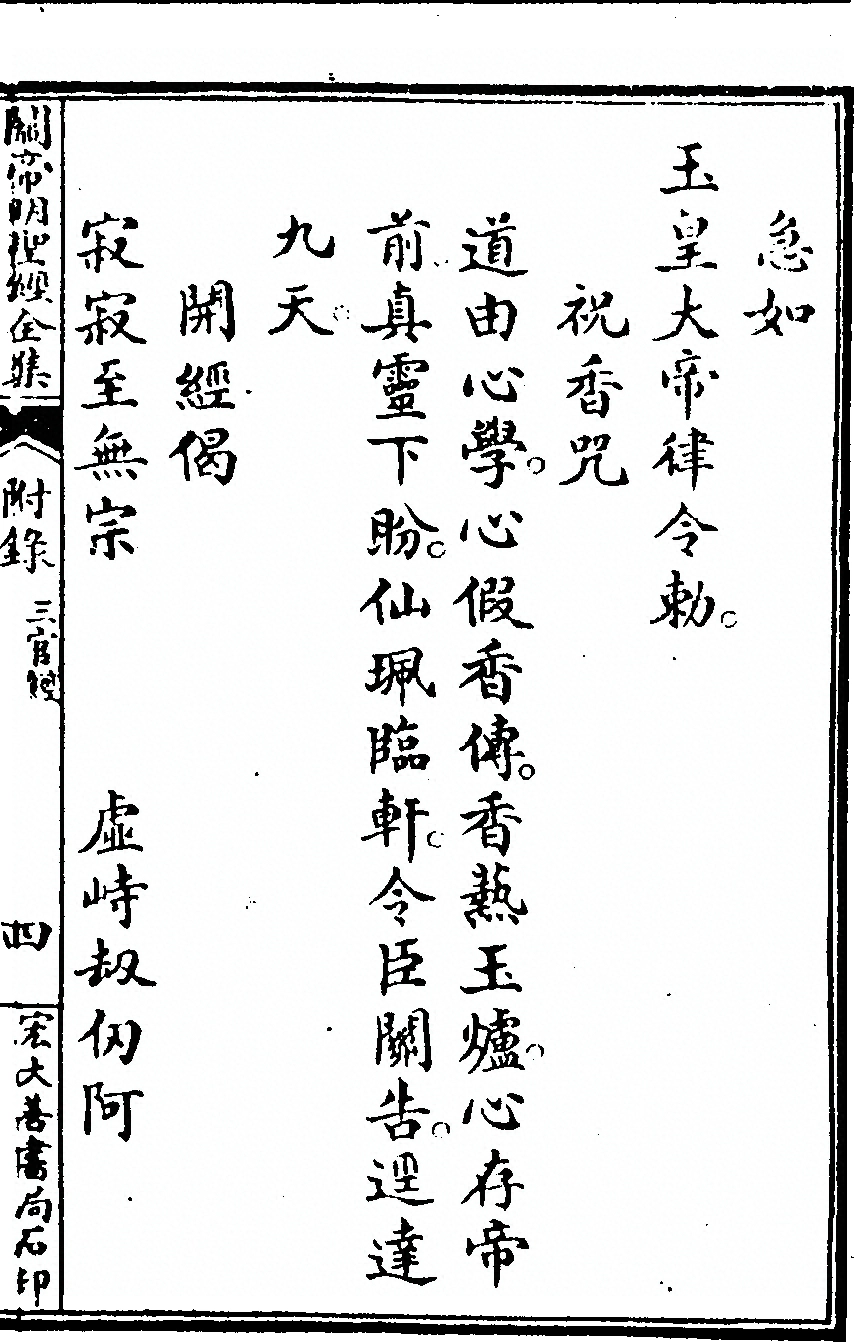 急如
玉皇大帝律令勅。
祝香咒
道由心學。心假香傳。香爇玉爐。心存帝
前。真靈下盼。仙珮臨軒。令臣關告。逕達
九天。
開經偈
寂寂至無宗 虛峙劫仞阿
關帝明聖經全集
附錄
三官經
四
宏大善書局石印